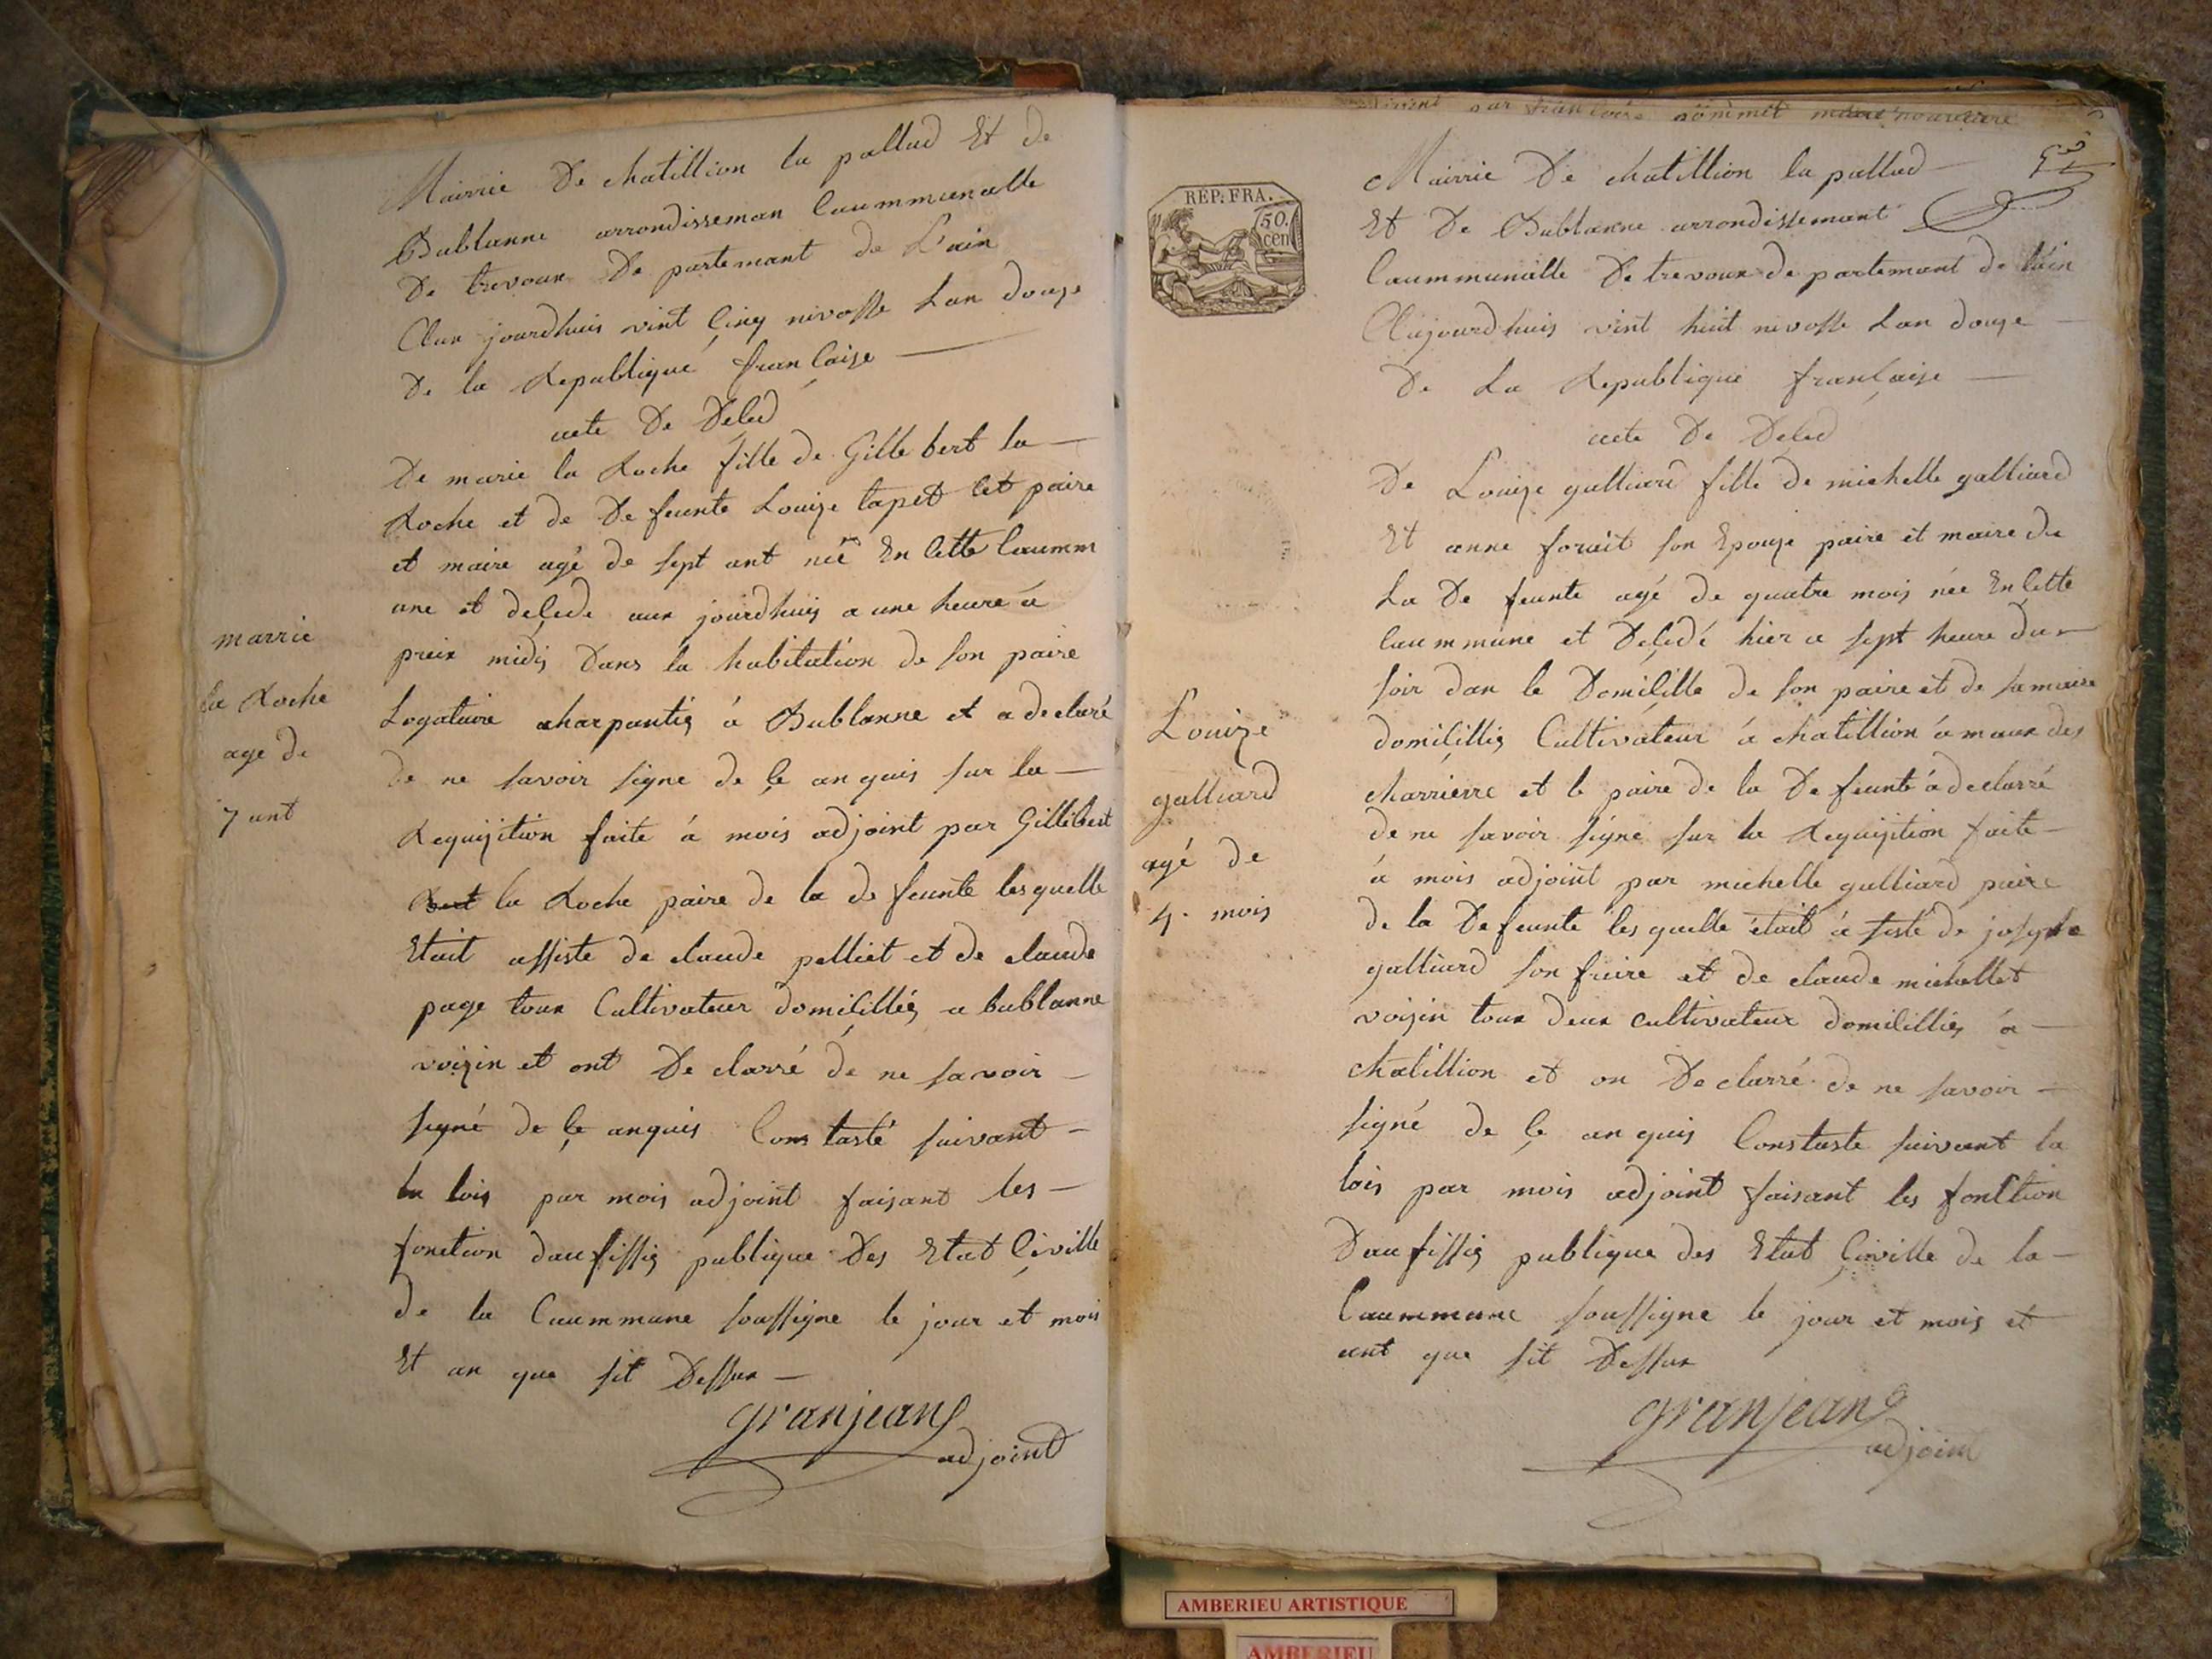 Mairie De chatillion la pallud Et de
Bublanne arrondisseman Caummunalle
De trevoux De partemant de L'ain
Aux jourdhuis vint Cinq nivosse Lan douze
De la Republique française
acte De Déced
De marie la Roche fille de Gille bert la
Roche et de De feunte Louize tapet Cet paire
et maire agé de sept ant née En Cette Caumm
une et decede aux jourdhuis a une heure a
preix midis Dans la habitation de son paire
Logataire charpantis á Bublanne et a declaré
de ne savoir signe de çe anquis sur la
Requizition faite á mois adjoint par Gillibert
la Roche paire de la de feunte lesquelle
Etait assiste de claude pelliet et de claude
page toux Cultivateur domicilliés a bublanne
voizin et ont De clarré de ne savoir
signé de çe anquis Cons tasté suivant
la lois par mois adjoint faisant les
fonction daufissis publique Des Etat Civille
de la Caummune soussigne le jour et mois
Et an que sit Dessux
granjean
adjoint
marrie
la Roche
age de
7 ant
REP. FRA.
50.
cen
Mairie De chatillion la pallud
Et De Bublanne arrondissemant
Caummunalle De trevoux de partemant de l'ain
Aujourdhuis vint huit nivosse Lan douze
De La Republique française
acte De Déced
De Louize galliard fille de michelle galliard
Et anne forait son Epouze paire et maire de
La De feunte agé de quatre mois née En Cette
Caummune et Decédé hier a sept heure du
soir dan le Domicille de son paire et de sa maire
domicillis Cultivateur á chatillion á maux des
charriérre et le paire de la De feunte á declarré
de ne savoir signe sur la Requizition faite
á mois adjoint par michelle galliard paire
de la De feunte les quelle était á sisté de josephe
galliard son fraire et de claude michellet
voizin toux deux cultivateur domicilliés á
chatillion et on De clarré de ne savoir
signé de çe an quis Constaste suivant la
lois par mois adjoint faisant les fonction
Daufissis publique des Etat Civille de la
Caummune soussigne le jour et mois et
ant que sit Dessux
granjean
adjoint
Louize
galliard
agé de
4. mois
AMBERIEU ARTISTIQUE
AMBERIEU